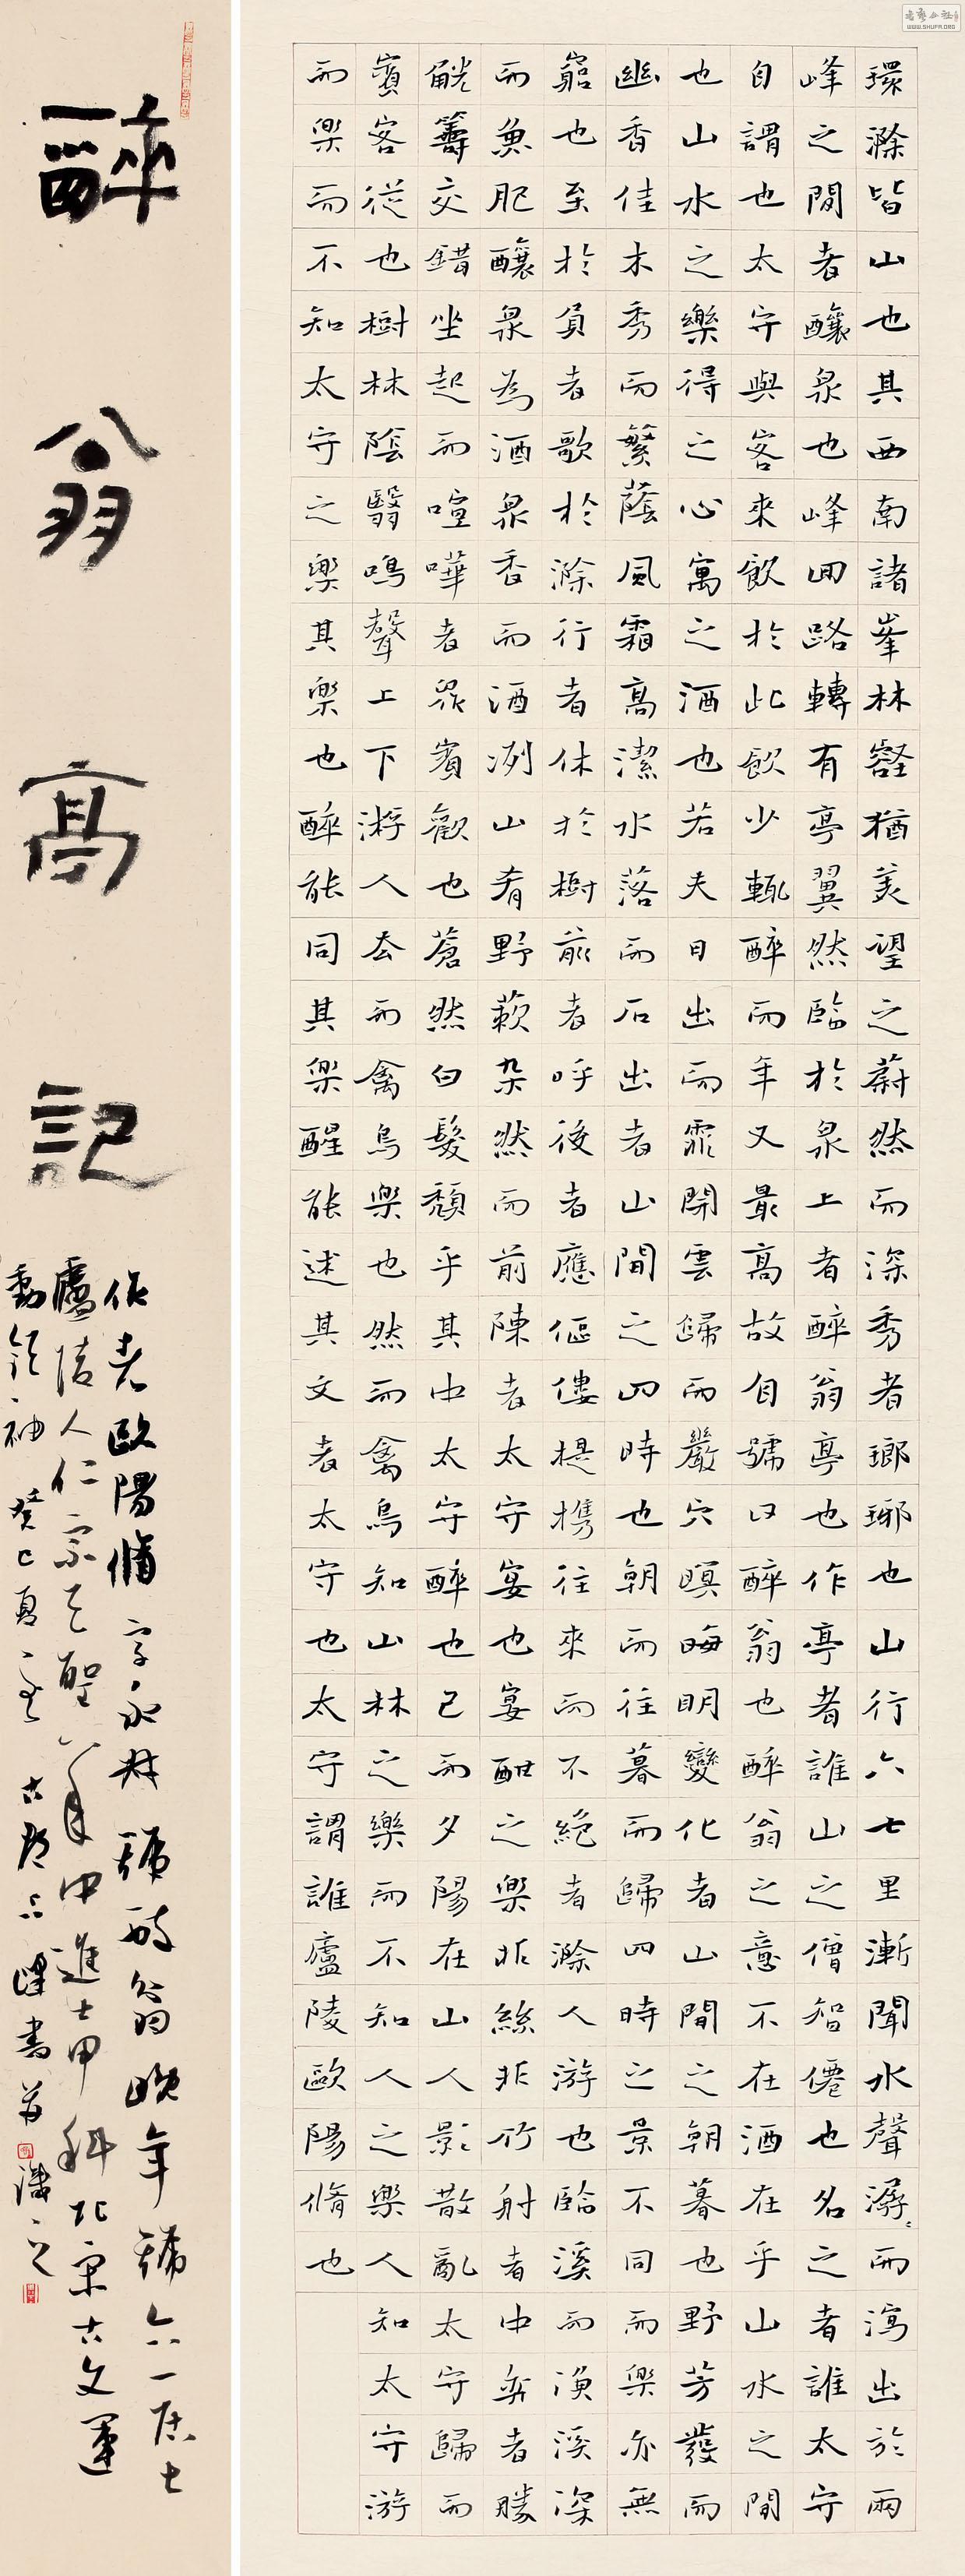 環滁皆山也其西南諸峯林壑猶美望之蔚然而深秀者瑯琊也山行六七里漸聞水聲潺〻而瀉出於兩
峰之間者釀泉也峰回路轉有亭翼然臨於泉上者醉翁亭也作亭者誰山之僧智僊也名之者誰太守
自謂也太守與客來飲於此飲少輒醉而年又最高故自號曰醉翁也醉翁之意不在酒在乎山水之間
也山水之樂得之心寓之酒也若夫日出而霏開雲歸而巖穴暝晦明變化者山間之朝暮也野芳發而
幽香佳木秀而繁蔭風霜高潔水落而石出者山間之四時也朝而往暮而歸四時之景不同而樂亦無
窮也至於負者歌於滁行者休於樹前者呼後者應傴僂提携往來而不絕者滁人游也臨溪而漁溪深
而魚肥釀泉為酒泉香而酒洌山肴野蔌杂然而前陳者太守宴也宴酣之樂非絲非竹射者中弈者勝
觥籌交錯坐起而喧嘩者眾賓歡也蒼然白髮頹乎其中太守醉也已而夕陽在山人影散亂太守歸而
賓客從也樹林陰翳鳴聲上下游人去而禽鳥樂也然而禽鳥知山林之樂而不知人之樂人知太守游
而樂而不知太守之樂其樂也醉能同其樂醒能述其文者太守也太守謂誰廬陵歐陽脩也
醉翁亭記
作者歐陽脩字永叔號醉翁晚年號六一居士
廬陵人仁宗天聖八年中進士甲科北宋古文運
動領袖癸巳夏書並識之
WWW.SHUFA.ORG